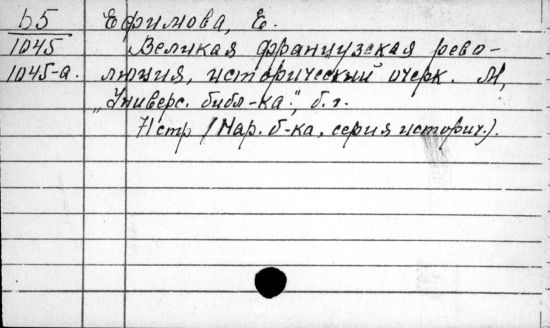 Б5 Ефимова, Е.
1045 Великая французская рево-
1045-а. люция, исторический очерк. М,
„Универс. библ-ка", б. г.
71 стр (Нар. б-ка, серия историч.).